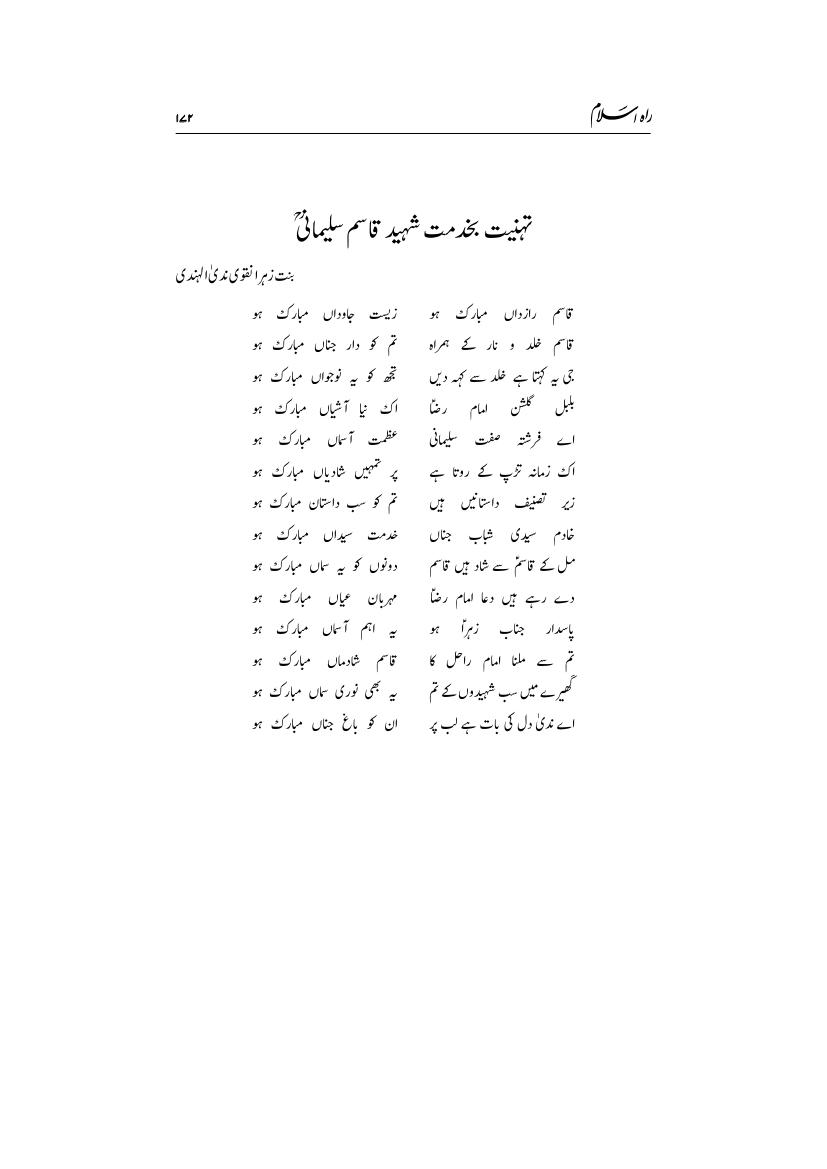 راہ اسلام ۱۷۲
تہنیت بخدمت شہید قاسم سلیمانیؒ
بنت زہرا نقوی ندیٰ الہندی
قاسم رازداں مبارک ہو زیست جاوداں مبارک ہو
قاسم خلد و نار کے ہمراہ تم کو دار جناں مبارک ہو
جی یہ کہتا ہے خلد سے کہہ دیں تجھ کو یہ نوجواں مبارک ہو
بلبل گلشن امام رضاؑ اک نیا آشیاں مبارک ہو
اے فرشتہ صفت سلیمانی عظمت آسماں مبارک ہو
اک زمانہ تڑپ کے روتا ہے پر تمہیں شادیاں مبارک ہو
زیر تصنیف داستانیں ہیں تم کو سب داستان مبارک ہو
خادم سیدی شباب جناں خدمت سیداں مبارک ہو
مل کے قاسمؑ سے شاد ہیں قاسم دونوں کو یہ سماں مبارک ہو
دے رہے ہیں دعا امام رضاؑ مہربان عیاں مبارک ہو
پاسدار جناب زہراؑ ہو یہ اہم آسماں مبارک ہو
تم سے ملنا امام راحل کا قاسم شادماں مبارک ہو
گھیرے میں سب شہیدوں کے تم یہ بھی نوری سماں مبارک ہو
اے ندیٰ دل کی بات ہے لب پر ان کو باغ جناں مبارک ہو